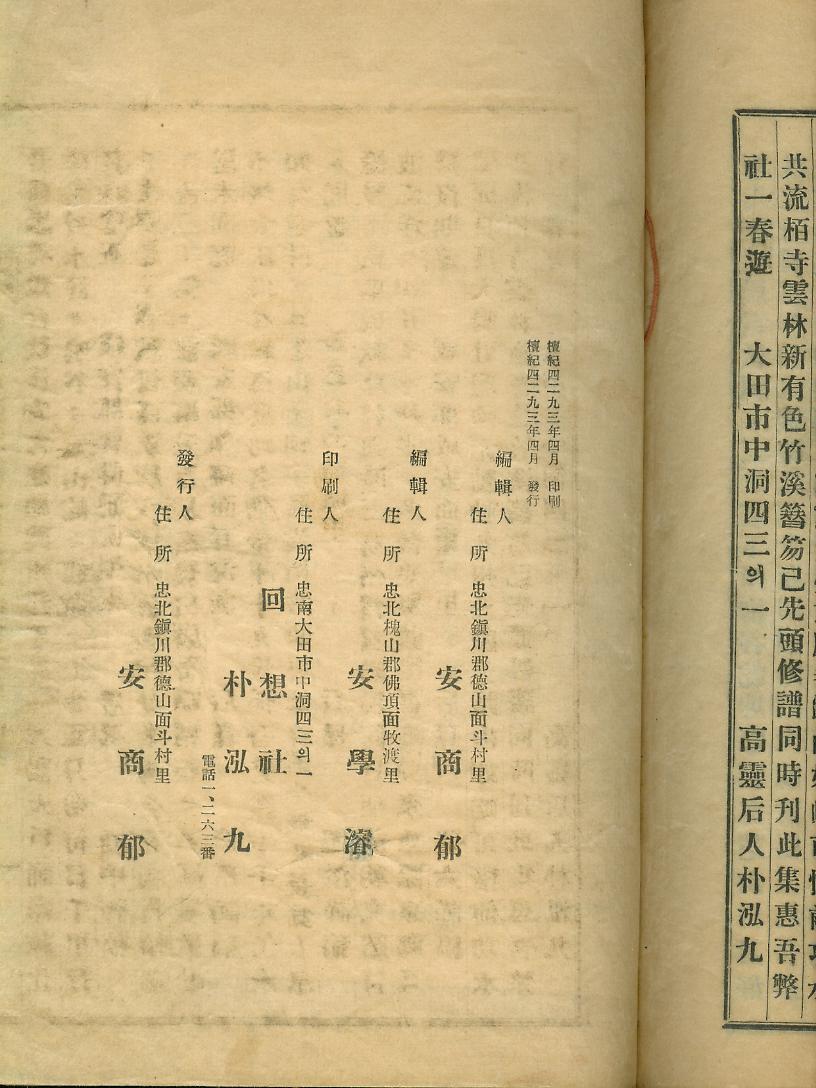 共流栢寺雲林新有色竹溪簪笏己先頭修譜同時刊此集惠吾弊
社一春遊 大田市中洞四三의一 高靈后人朴泓九
檀紀四二九三年四月 印刷
檀紀四二九三年四月 發行
編輯人
住所 忠北鎭川郡德山面斗村里
安商郁
編輯人
住所 忠北槐山郡佛頂面牧渡里
安學濬
印刷人
住所 忠南大田市中洞四三의一
回想社
朴泓九
電話一、二六三番
發行人
住所 忠北鎭川郡德山面斗村里
安商郁